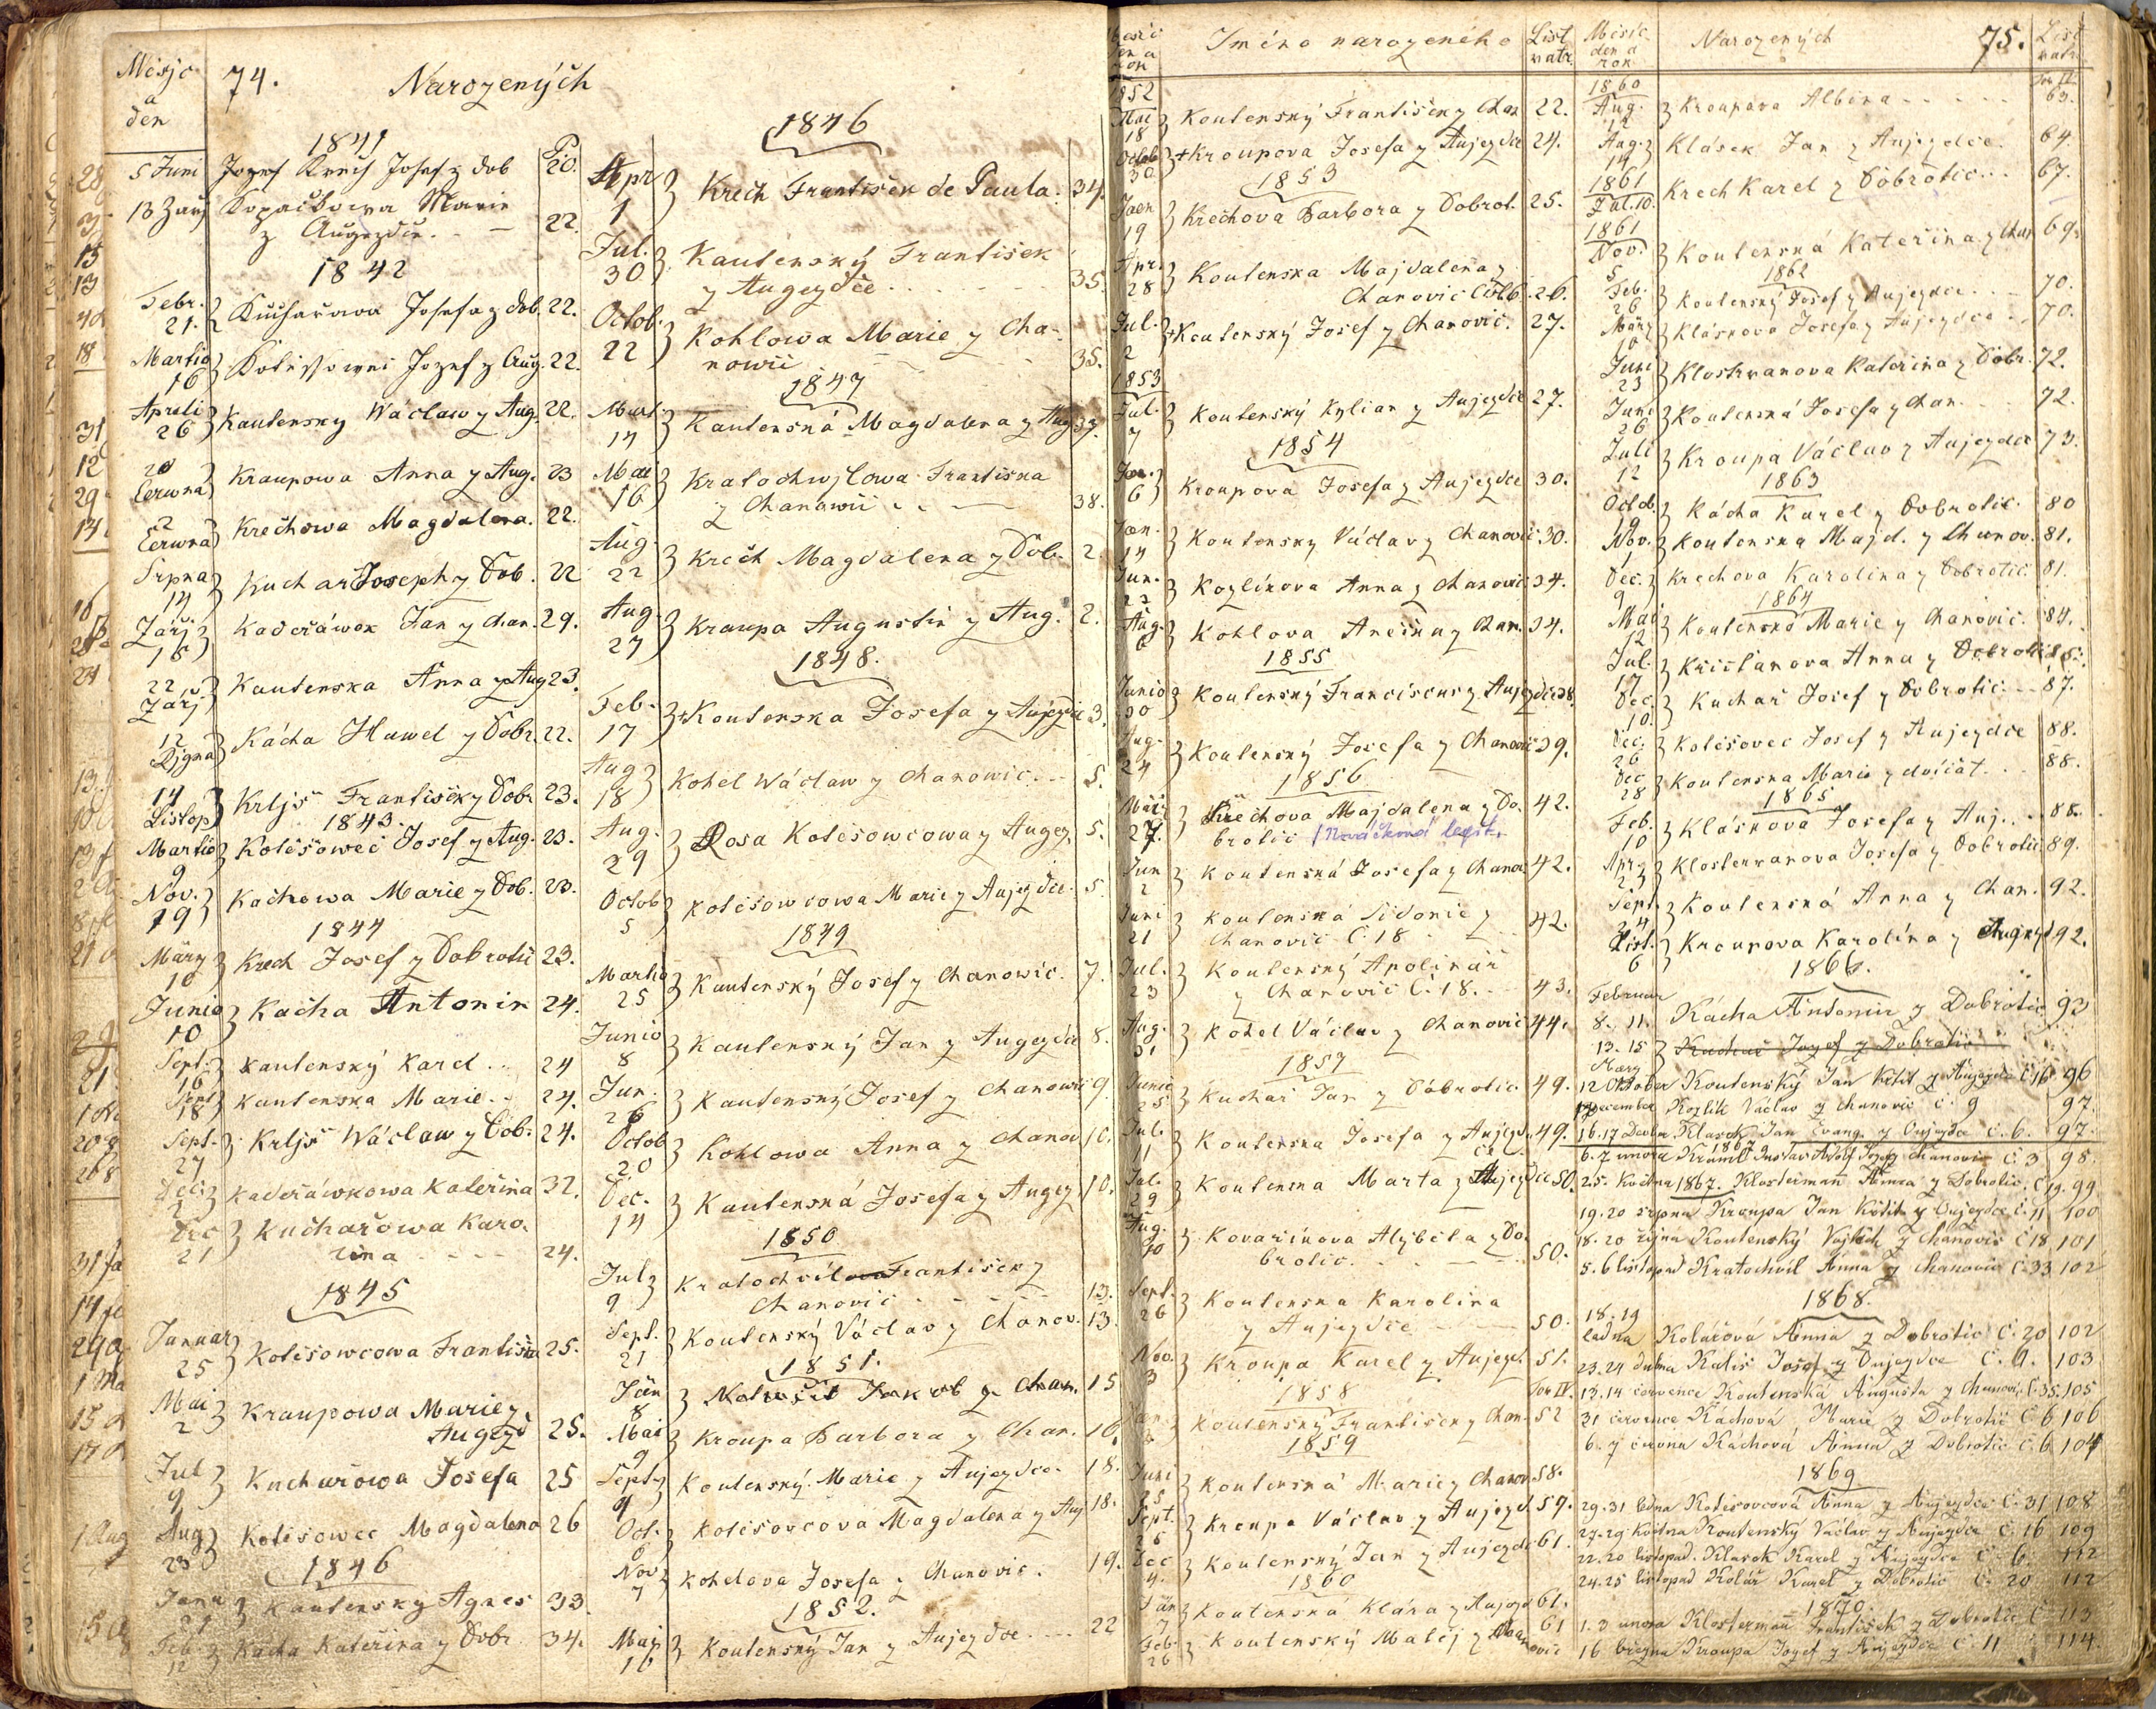 Měsjc
a
den
74.
Narozených
1841
5 Juni Jozef Krech Josef z Dob 20.
13 Září Kopačkowa Marie
z Augezdce. 22.
1842
Febr. 21. Kuchařowa Josefa z Dob. 22.
Martio 16 Jozef z Aug. 22.
Aprili 26 Kautensky Wáclaw z Aug. 22.
20 Čerwna Kraupowa Anna z Aug. 23
2 Čerwna Krechowa Magdalena. 22.
Srpna 14 Kuchar Joseph z Dob. 22
Zářj 18 Kadeřáwek Jan z Chan. 29.
22 Zářj Kautenska Anna z Aug 23.
12 Řjgna Kácha Hawel z Dobr. 22.
14 Listop Krljs František z Dobr 23.
1843.
Martio 9 Kolčsowec Josef z Aug. 23.
Nov. 19 Kachowa Marie z Dob. 23.
1844
März 10 Krech Josef z Dobrotic 23.
Junio 10 Kacha Antonin 24.
Sept. 16 Kautenský Karel .. 24
Sept 18 Kautenska Marie .. 24.
Sept. 27 Krljs Wáclaw z Dob: 24.
Dec. 2 Kadeřáwkowa Kateřina 32.
Dec 21 Kuchařowa Karo-
lina 24.
1845
Januar 25 Kolčsowcowa Františka 25.
Mai 2 Kraupowa Marie z
Augezd 25.
Jul 9 Kuchařowa Josefa 25
Aug 23 Kolčsowec Magdalena 26
1846
Janu 29 Kautensky Agnes 33.
Feb. 12 Kacha Kateřina z Dobr. 34.
1846
Apr 1 Krech František de Paula. 34.
Jul. 30 Kautenský František
z Augezdce 35.
Octob. 22 Kohlowa Marie z Cha-
nowic 35.
1847
Mart. 14 Kautenská Magdalena z Aug 37.
Mai 16 Kratochwjlowa Františka
z Chanowic 38.
Aug. 22 Krech Magdalena z Dob. 2.
Aug. 27 Kraupa Augustin z Aug. 2.
1848.
Feb. 17 Koutenska Josefa z Aujezdce 3.
Aug 18 Kohel Wáclaw z Chanowic 5.
Aug. 29 Rosa Kolčsowcowa z Augez. 5.
Octob 5 Kolčsowcowa Marie z Aujezdce. 5
1849
Martio 25 Kautenský Josef z Chanowic. 7.
Junio 8 Kautenský Jan z Augezdce 8.
Jun. 26 Kautenský Josef z Chanowic 9.
Octob 20 Kohlowa Anna z Chanow 10.
Dec. 14 Kautenská Josefa z Augez. 10.
1850
Jul 9 Kratochvil František z
Chanovic 13.
Sept. 21 Koutenský Václav z Chanov. 13.
1851.
Jän 8 Jakob z Chan. 15
Mai 9 Kroupa Barbora z Chan. 16.
Sept. 9 Koutenský Marie z Aujezdce. 18.
Oct. 6 Kolčsovcova Magdalena z Auj 18.
Nov. 7 Kohelova Josefa z Chanovic. 19.
1852.
Maj 16 Koutenský Jan z Aujezdce. 22
Iméno narozeného
List matr.
1852
Mai 18 Koutenský František z Chan 22.
Octob 30 Kroupova Josefa z Aujezdce 24.
1853
Jaen 19 Krechova Barbora z Dobrot. 25.
Apr. 28 Koutenska Majdalena z
Chanovic 26.
Jul. 2 Koutenský Josef z Chanovic. 27.
1853
Jul. 7 Koutenský Kylian z Aujezdce 27.
1854
Jan. 6 Kroupova Josefa z Aujezdce 30.
Jan. 14 Koutensky Václav z Chanovic 30.
Jun. 23 Kozlíkova Anna z Chanovic 34.
Aug. 6 Kohlova z Chan. 34.
1855
Junio 30 Koutenský Franciscus z Aujezdce 38.
Aug. 24 Koutenský Josefa z Chanovic 39.
1856
März 27. Krechova Majdalena z Do- 42.
brotic /Nováčková legit.
Jun 2 Koutenská Josefa z Chanov 42.
Juni 21 Koutenská Sidonie z
Chanovic Č. 18 42.
Jul. 23 Koutenský Apolinář
z Chanovic Č. 18. 43.
Aug. 31 Kohel Václav z Chanovic 44.
1857
Junio 25 Kuchař Jan z Dobrotic 49.
Jul. 11 Koutenska Josefa z Aujezd. 49.
Jul. 29 Koutenska Marta z Aujezdce 50.
Aug. 10 Kovaříkova Alžběta z Do-
brotic 50.
Sept. 26 Koutenska Karolina
z Aujezdce 50.
Nov. 3 Kroupa Karel z Aujezd. 51.
1858 Tom IV.
Koutenský František z Chan. 52
1859
Juni 25 Koutenská Marie z Chanov 58.
Sept. 26 Kroupa Václav z Aujezd 59.
Dec 4. Koutenský Jan z Aujezdce 61.
1860
Jän 7 Koutenská Klára z Aujezd 61.
Feb 26 Koutenský Matěj z Chanovic 61
Měsíc den a rok
Narozených
75.
List matr.
Tom IV.
1860
Aug. 12 Kroupova Albina 63.
Aug. 14 Klásek Jan z Aujezdce. 64.
1861
Jul. 10. Krech Karel z Dobrotic 67.
1861
Nov. 5 Koutenská Kateřina z Chan 69.
1862
Feb. 26 Koutenský Josef z Aujezdce 70.
März 10 Kláskova Josefa z Aujezdce 70.
Juni 23 Kateřina z Dobr. 72.
Juni 26 Koutenská Josefa z Chan. 72.
Juli 12 Kroupa Václav z Aujezdce 73.
1863
Octob. 19 Kácha Karel z Dobrotic. 80
Nov. 1 Koutenska Majd. z Chanov. 81.
Dec. 9 Krechova Karolina z Dobrotic. 81.
1864
Mai 12 Koutenská Marie z Chanovic. 84.
Jul. 17 Kristanova Anna z Dobrotic 85.
Dec. 10. Kuchař Josef z Dobrotic 87.
Dec. 26 Kolčsovec Josef z Aujezdce 88.
Dec 28 Koutenska Marie z 88.
1865
Feb. 10 Kláskova Josefa z Auj. 88.
Apr. 23 Klostermanova Josefa z Dobrotic 89.
Sept. 24 Koutenská Anna z Chan. 92.
List. 6 Kroupova Karolína z Augezd 92.
1866.
Februar
8. 11. Kácha Antonin z Dobrotic 93
13. 15 März Kuchař Jozef z Dobrotic
12 Oktober Koutenský Jan Křtit. z Aujezda Č. 16 96
December Kozlík Václav z Chanovic č. 9 97.
16. 17 Decbr Klasek Jan Evang. z Oujezda Č. 6. 97.
1867
6. 7 února Gustav Adolf Josef z Chanovic Č. 3 98.
25. Května 1867. Klosterman Anna z Dobrotic, Č. 19. 99
19. 20 srpna Kroupa Jan Křtit. z Oujezdce Č. 11 100
18. 20 října Koutenský Vojtěch z Chanovic Č 18 101
5. 6 listopad Kratochvil Anna z Chanovic Č. 33 102
1868.
18. 19 ledna Kolářová Anna z Dobrotic Č. 20 102
23. 24 dubna Josef z Oujezdce Č. 9. 103
13. 14 července Koutenská Augusta z Chanovic Č. 35. 105
31 července Káchová Marie z Dobrotic Č. 6 106
6. 7 června Káchová Anna z Dobrotic Č. 6 104
1869
29. 31 ledna Kolčsovcová Anna z Aujezdce Č. 31 108
27. 29 května Koutenský Václav z Aujezdce Č. 16 109
22. 20 listopad. Klasek Karel z Aujezdce Č. 6. 112
24. 25 listopad Kolář Karel z Dobrotic Č. 20 112
1870.
1. 3 února Klosterman František z Dobrotic Č 113
16 března Kroupa Jozef z Aujezdce Č. 11 114.